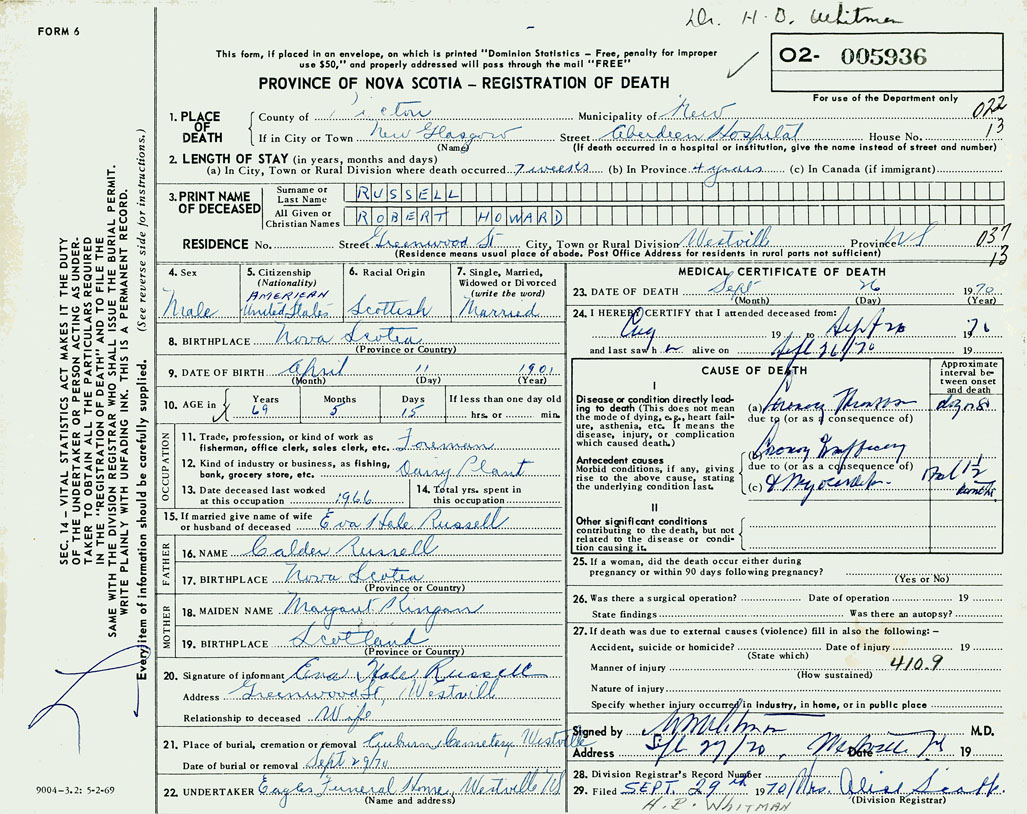 Dr. H. D. Whitman
FORM 6
This form, if placed in an envelope, on which is printed "Dominion Statistics – Free, penalty for improper
use $50," and properly addressed will pass through the mail "FREE"
PROVINCE OF NOVA SCOTIA – REGISTRATION OF DEATH
02- 005936
For use of the Department only
1. PLACE OF DEATH
County of Pictou Municipality of New 022
If in City or Town New Glasgow Street Aberdeen Hospital House No. 13
(Name) (If death occurred in a hospital or institution, give the name instead of street and number)
2. LENGTH OF STAY (in years, months and days)
(a) In City, Town or Rural Division where death occurred 7 weeks (b) In Province 4 years (c) In Canada (if immigrant)
3. PRINT NAME OF DECEASED
Surname or Last Name RUSSELL
All Given or Christian Names ROBERT HOWARD
RESIDENCE No. Street Greenwood St City, Town or Rural Division Westville Province NS 037
(Residence means usual place of abode. Post Office Address for residents in rural parts not sufficient) 13
4. Sex
Male
5. Citizenship
(Nationality)
AMERICAN
United States
6. Racial Origin
Scottish
7. Single, Married,
Widowed or Divorced
(write the word)
Married
8. BIRTHPLACE Nova Scotia
(Province or Country)
9. DATE OF BIRTH April 11 1901
(Month) (Day) (Year)
10. AGE in
Years Months Days If less than one day old
69 5 15 hrs. or min.
OCCUPATION
11. Trade, profession, or kind of work as
fisherman, office clerk, sales clerk, etc. Foreman
12. Kind of industry or business, as fishing,
bank, grocery store, etc. Dairy Plant
13. Date deceased last worked
at this occupation 1966
14. Total yrs. spent in
this occupation
15. If married give name of wife
or husband of deceased Eva Hale Russell
FATHER
16. NAME Calder Russell
17. BIRTHPLACE Nova Scotia
(Province or Country)
MOTHER
18. MAIDEN NAME Margaret
19. BIRTHPLACE Scotland
(Province or Country)
20. Signature of informant Eva Hale Russell
Address Greenwood St, Westvill
Relationship to deceased Wife
21. Place of burial, cremation or removal Auburn Cemetery Westville
Date of burial or removal Sept 29/70
22. UNDERTAKER Eagles Funeral Home, Westville NS
(Name and address)
MEDICAL CERTIFICATE OF DEATH
23. DATE OF DEATH Sept 26 1970
(Month) (Day) (Year)
24. I HEREBY CERTIFY that I attended deceased from:
Aug 19 to Sept 26 1970
and last saw h alive on Sept 26/70 19
CAUSE OF DEATH
Approximate
interval be-
tween onset
and death
I
Disease or condition directly lead-
ing to death (This does not mean
the mode of dying, e.g., heart fail-
ure, asthenia, etc. It means the
disease, injury, or complication
which caused death.)
(a) Coronary Thrombosis
due to (or as a consequence of)
Antecedent causes
Morbid conditions, if any, giving
rise to the above cause, stating
the underlying condition last.
Coronary Insufficiency
due to (or as a consequence of)
(c)
II
Other significant conditions
contributing to the death, but not
related to the disease or condi-
tion causing it.
25. If a woman, did the death occur either during
pregnancy or within 90 days following pregnancy?
(Yes or No)
26. Was there a surgical operation? Date of operation 19
State findings Was there an autopsy?
27. If death was due to external causes (violence) fill in also the following: –
Accident, suicide or homicide? Date of injury 19
(State which)
Manner of injury 410.9
(How sustained)
Nature of injury
Specify whether injury occurred in industry, in home, or in public place
Signed by Whitman M.D.
Address Sept 27/70, Westville NS Date 19
28. Division Registrar's Record Number
29. Filed SEPT. 29th 1970 Mrs. Alice
(Division Registrar)
H. D. WHITMAN
SEC. 14 – VITAL STATISTICS ACT MAKES IT THE DUTY
OF THE UNDERTAKER OR PERSON ACTING AS UNDER-
TAKER TO OBTAIN ALL THE PARTICULARS REQUIRED
IN THE "REGISTRATION OF DEATH" AND TO FILE THE
SAME WITH THE DIVISION REGISTRAR WHO SHALL ISSUE THE BURIAL PERMIT.
WRITE PLAINLY WITH UNFADING INK. THIS IS A PERMANENT RECORD.
Every item of information should be carefully supplied. (See reverse side for instructions.)
9004–3.2: 5-2-69